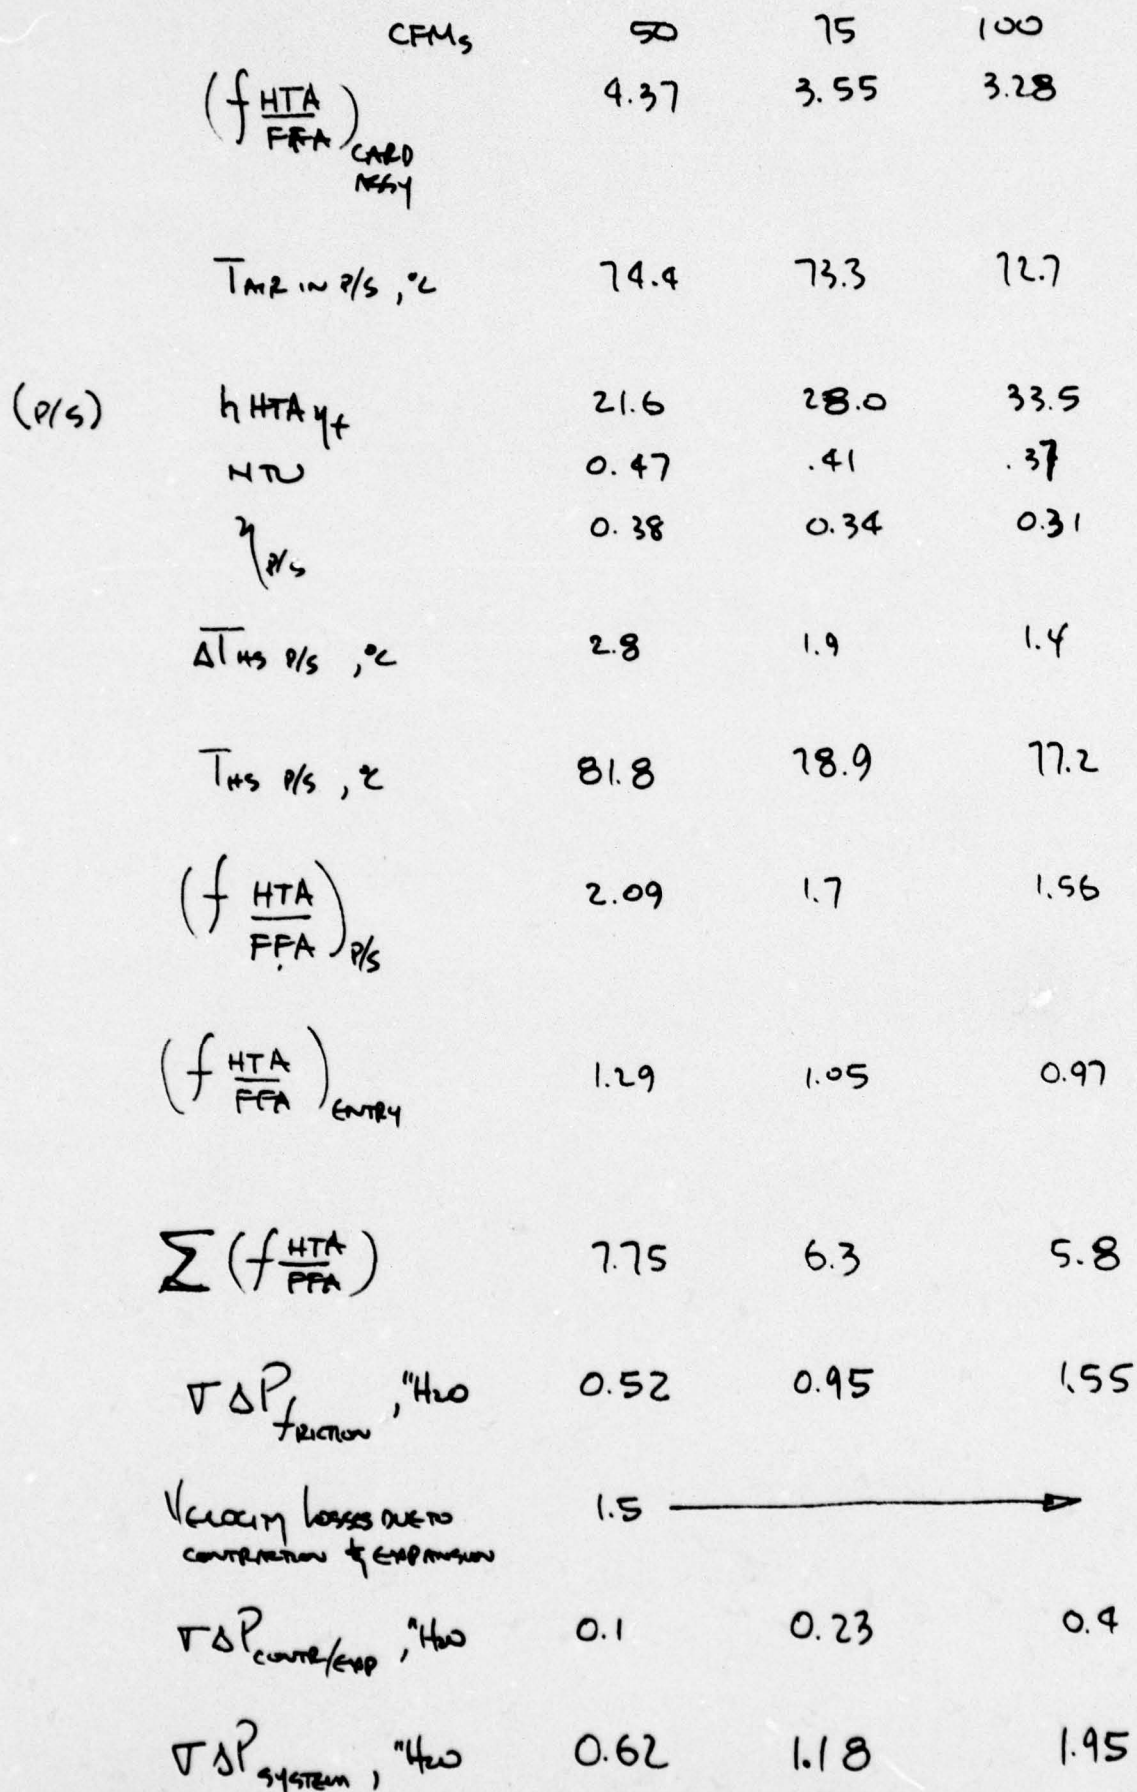 CFMs 50 75 100
(f HTA/FFA) CARD ASSY 4.37 3.55 3.28
T AIR IN P/S, °C 74.4 73.3 72.7
(P/S) h HTA ηf 21.6 28.0 33.5
NTU 0.47 .41 .37
η P/S 0.38 0.34 0.31
ΔT HS P/S, °C 2.8 1.9 1.4
T HS P/S, °C 81.8 78.9 77.2
(f HTA/FFA) P/S 2.09 1.7 1.56
(f HTA/FFA) ENTRY 1.29 1.05 0.97
Σ (f HTA/FFA) 7.75 6.3 5.8
σ ΔP FRICTION, "H2O 0.52 0.95 1.55
VELOCITY LOSSES DUE TO 1.5
CONTRACTION & EXPANSION
σ ΔP CONTR/EXP, "H2O 0.1 0.23 0.4
σ ΔP SYSTEM, "H2O 0.62 1.18 1.95